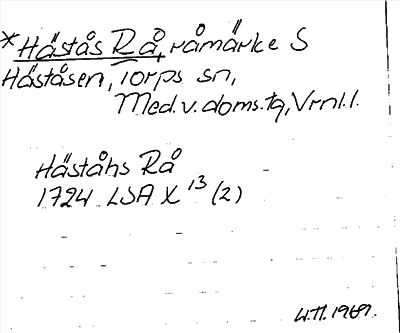 *Håstås Rå, råmärke S
Håståsen, Torps sn,
Med.v.doms.tg, Vrml.l.
Håståhs Rå
1724 LSA X 13 (2)
1969.